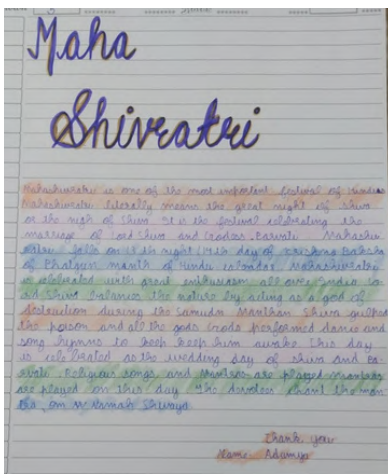 Maha
Shivratri
Mahashivratri is one of the most important festival of Hindus
Mahashivratri literally means the great night of Shiva
or the nigh of Shiva. It is the festival celebrating the
marriage of Lord Shiva and Godess Parvati Mahashiv
ratri falls on 13th night/14th day of Krishna Paksha
of Phalgun month of Hindu calendar Mahashivratri
is celebrated with great enthusiasm all over India
Shiva balances the nature by acting as a god of
destruction during the Samudra Manthan Shiva gulped
the poison and all the gods performed dance and
song hymns to keep keep him awake This day
is celebrated as the wedding day of Shiva and Pa
rvati. Religious songs and mantras are played
are played on this day The devotees chant the man
tra om Namah Shivaya
Thank you
Name